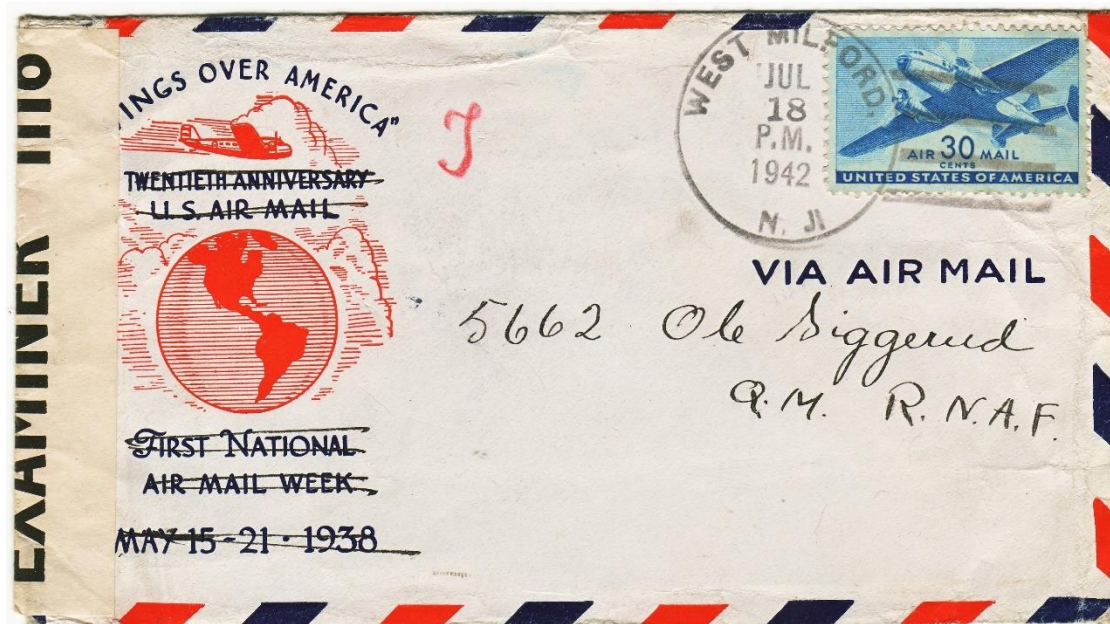 EXAMINER
INGS OVER AMERICA"
TWENTIETH ANNIVERSARY
U.S. AIR MAIL
FIRST NATIONAL
AIR MAIL WEEK
MAY 15-21 • 1938
J
WEST MILFORD,
JUL
18
P.M.
1942
N. J.
AIR 30 MAIL
CENTS
UNITED STATES OF AMERICA
VIA AIR MAIL
5662 Ole Siggerud
Q.M. R.N.A.F.